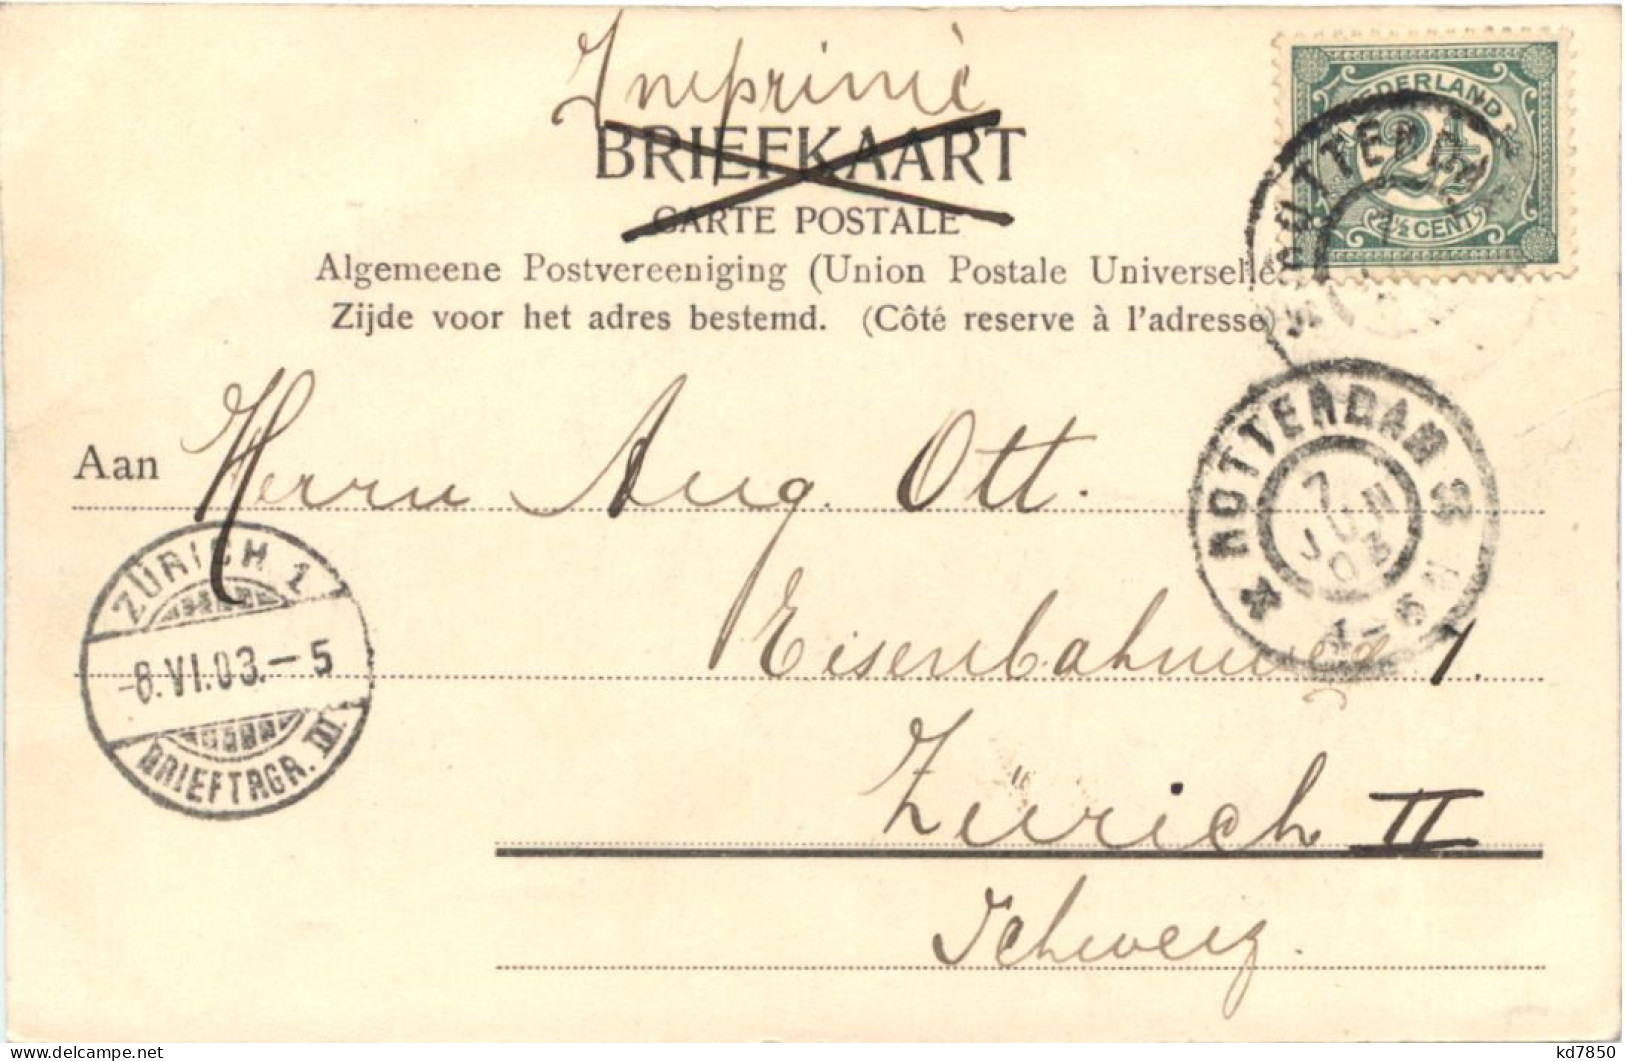 Imprimé
BRIEFKAART
CARTE POSTALE
Algemeene Postvereeniging (Union Postale Universelle
Zijde voor het adres bestemd. (Côté reserve à l'adresse)
NEDERLAND
2½
2½ CENT
ROTTERDAM
ROTTERDAM
7
JUN
03
4-5N
Aan Herrn Aug. Ott.
Eisenbahnweg 1.
Zürich II
Schweiz.
ZÜRICH 1
-8.VI.03.-5
BRIEFTRGR. III
kd7850